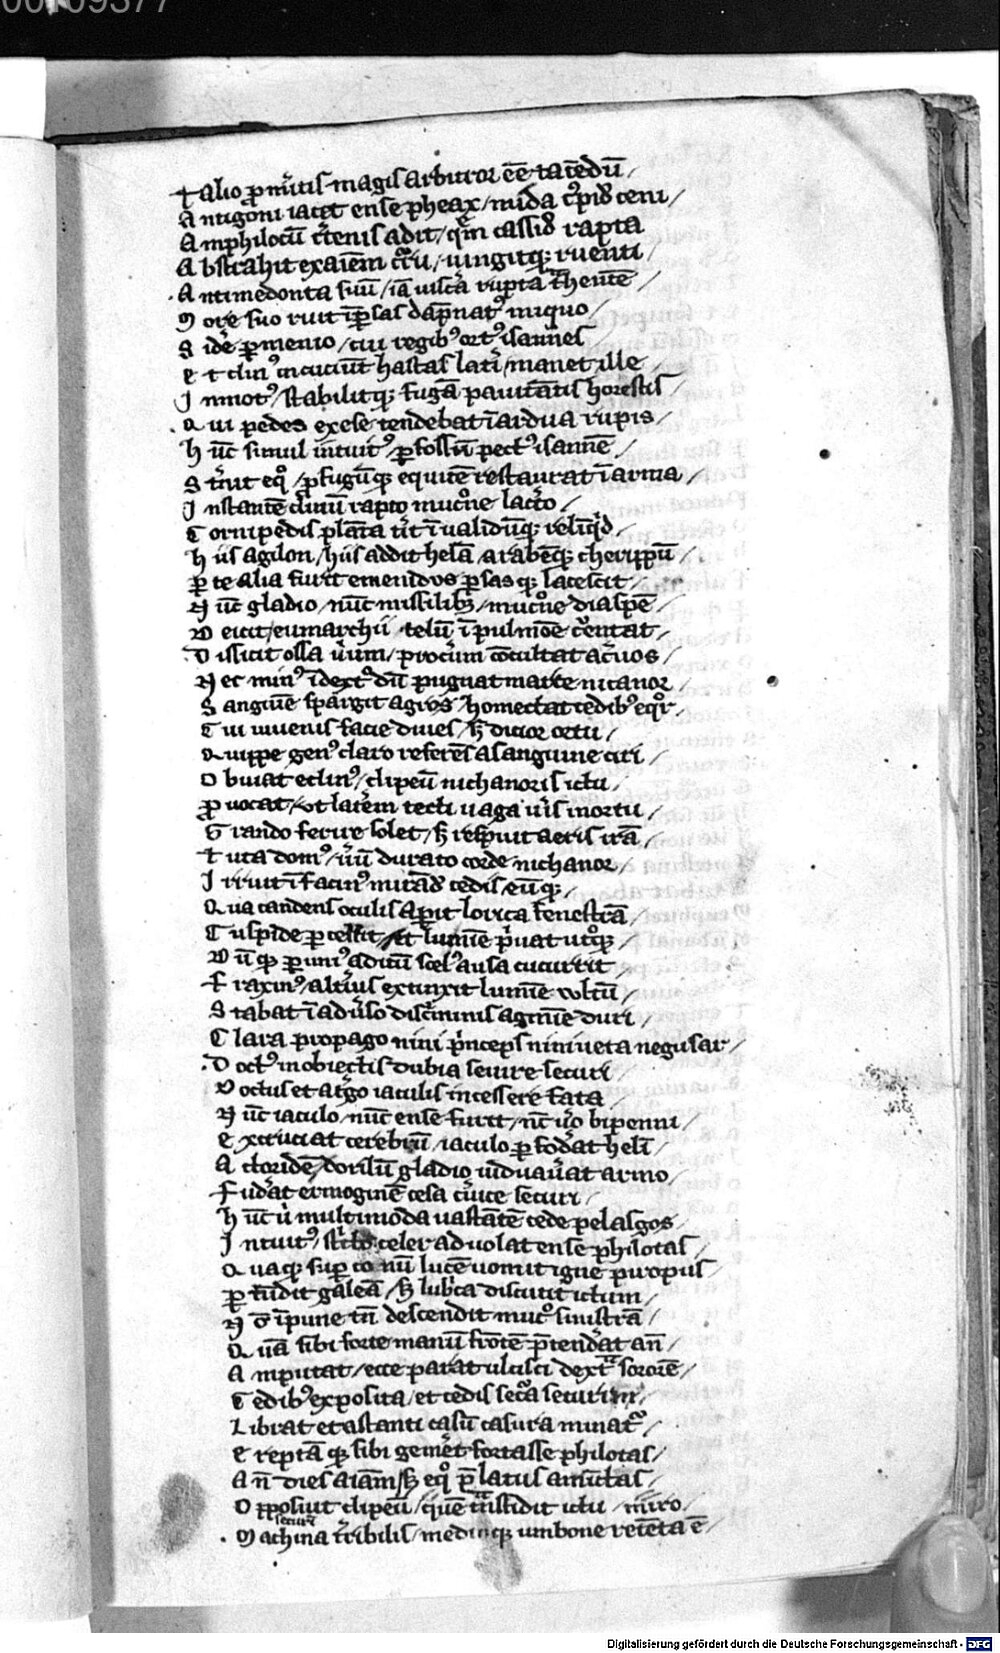 00109377
T alio ꝓ mr̃itis magis arbitror eē tacēdū /
A ntigoni iacet ense pheax / mida cꝰpidꝰ ceni /
A mphilocū c̃tenis adit / qm̃ cassidꝰ rapta
A bstrahit exaīem c̃tru / iungitqꝫ ruenti /
A ntimedonta suū / iā uisc̃a rupta t̃hentē /
M ore suo ruit ī ꝑsas dāpnatꝰ iniquo /
S idē ꝑmenio / cui regibꝰ ortꝰ isannes
E t elinꝰ incuciūt hastas lat̃i / manet ille
I nmotꝰ / stabilitqꝫ fugā pauitātis horestis
Q ui pedes exese tendebat ī ardua rupis /
H ūc simul intuitꝰ / ꝑfossū pectꝰ isannē /
S t̃nit eqͦ / ꝓfugūqꝫ equitē restaurat ī arma /
I nstantē elinū rapto mucͦne lac̃to /
C ornipedis plāta t̃it īualidūqꝫ relinqͥd /
H iis agilon / hiis addit helā / arabēqꝫ cherippū /
ꝑ te alia furit emenidus ꝑsasqꝫ lacescit /
N ūc gladio / nūc missilibꝫ / mucͦne diaspē /
D eicit / eumarchii telū ī pulmōe cͬentat /
D issicit ossa uirum / procͬum cōcultat ac̃uos /
N ec minꝰ ī dextͬo dū pugnat marte nicanor /
S anguīe spargit agros / homectat cedibꝰ eqͦr /
C ui iuuenis facie diues / sꝫ dicior ortu /
Q uippe genꝰ claro referēs a sanguine ciri /
O buiat eclinꝰ / clipeū nichanoris ictu /
ꝓ uocat / ut lat̃em tecti uaga uis in ortu /
G rando ferire solet / sꝫ respuit aeris irā /
T uta domꝰ / uiū durato corde nichanor /
I rruit ī facinꝰ mirādꝰ cedis / eūqꝫ /
Q ua candens oculis aꝑit lorica fenestrā /
C uspide ꝑcellit / et lumīe pͥuat utͦqꝫ /
D ūqꝫ ꝑ unꝰ aditū scelꝰ ausa cucurrit /
F raxinꝰ / alt̃ius extinxit lumīe vultū /
S tabat ī adũso disc̃minis agmīe duri /
C lara propago nini pͥnceps niniueta negusar /
D octꝰ in obiectis dubia seuire securi /
D octus et a t̃go iaculis incessere fata /
N ūc iaculo / nūc ense furit / nc̄ uͦo bipenni /
E xcruciat cerebrū / iaculo ꝑfod̃at helī /
A cloridē / dorilū gladio uiduau̾at armo /
F ud̃at ermoginē cesa cͬuice securi /
H ūc ũ multimoda uastātē cede pelasgos /
I ntuitꝰ / strīto celer aduolat ense philotas /
Q uaqꝫ suꝑ conū lucē uomit igne piropus
ꝑ tūdit galeā / sꝫ lubͥca discutit ictum /
N ō īpune tn̄ descendit mucͦ sinistrā /
Q uā sibi forte manū frōtē p̄tend̾at an̄ /
A mputat / ecce parat ulcisci dextͣ sororē /
C edibꝰ exposita / et cedis secͣta securim /
L ibrat et astanti casū casura minatͬ /
E reptāqꝫ sibi gem̾et fortasse philotas /
A n̄ dies aiam / sꝫ eqͦ p̄latus amūctas /
O pposuit clipeū / quē tͣnsfidit ictu miro
securis
M achina t̃ribilis / medioqꝫ umbone retēta ē /
Digitalisierung gefördert durch die Deutsche Forschungsgemeinschaft - DFG